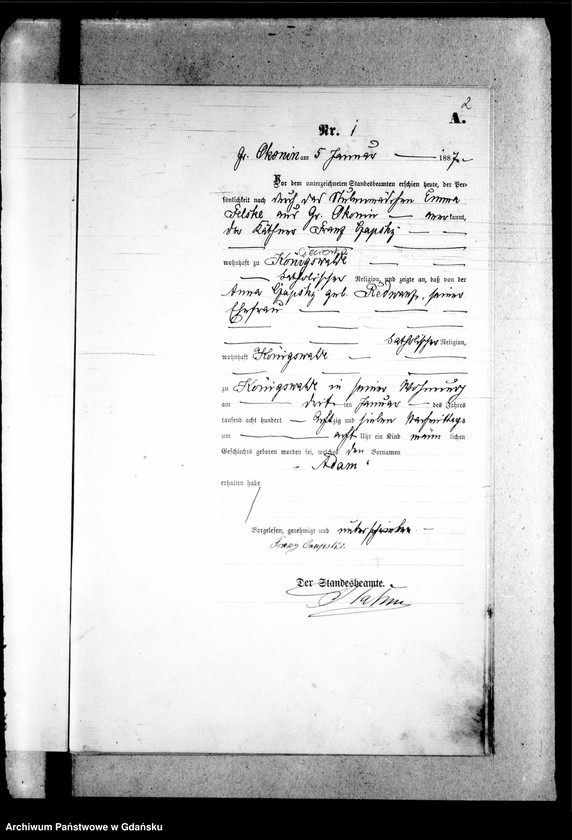 2
A.
Nr. 1
Gr. Okonin am 5 Januar 1887.
Vor dem unterzeichneten Standesbeamten erschien heute, der Per-
sönlichkeit nach durch das Stubenmädchen Emma
Felske aus Gr. Okonin aner kannt,
der Käthner Franz Czapsky
wohnhaft zu Königswalde
katholischer Religion, und zeigte an, daß von der
Anna Czapsky geb. seiner
Ehefrau
katholischer Religion,
wohnhaft Königswalde
zu Königswalde in seiner Wohnung
am dritten Januar des Jahres
tausend acht hundert achtzig und sieben Nachmittags
um acht Uhr ein Kind männlichen
Geschlechts geboren worden sei, welches den Vornamen
„Adam“
erhalten habe
Vorgelesen, genehmigt und unterschrieben
Franz Czapski.
Der Standesbeamte.
Archiwum Państwowe w Gdańsku